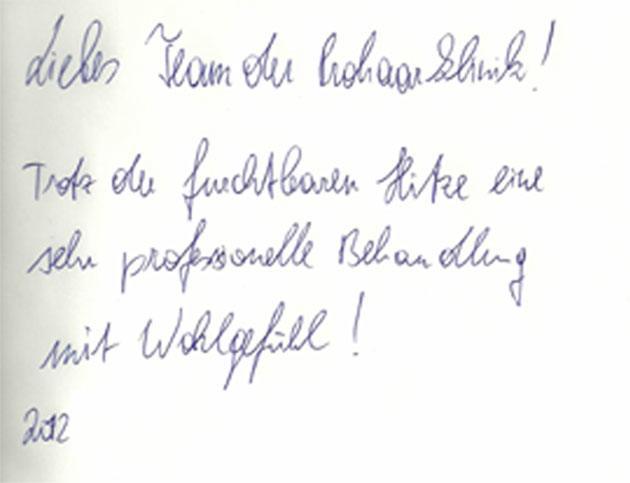 Liebes Team der Prohaar Klinik!
Trotz der furchtbaren Hitze eine
sehr professionelle Behandlung
mit Wohlgefühl!
2012